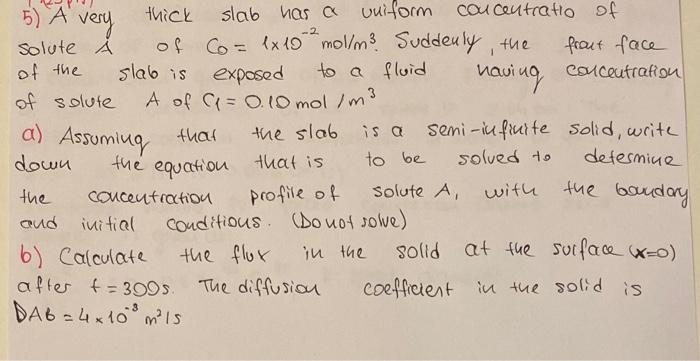 5) A very thick slab has a uniform concentratio of
solute A of C0 = 1x10⁻² mol/m³. Suddenly, the front face
of the slab is exposed to a fluid having concentration
of solute A of C1 = 0.10 mol/m³
a) Assuming that the slab is a semi-infinite solid, write
down the equation that is to be solved to determine
the concentration profile of solute A, with the boundary
and initial conditions. (Do not solve)
b) Calculate the flux in the solid at the surface (x=0)
after t = 300s. The diffusion coefficient in the solid is
DAB = 4x10⁻⁸ m²/s